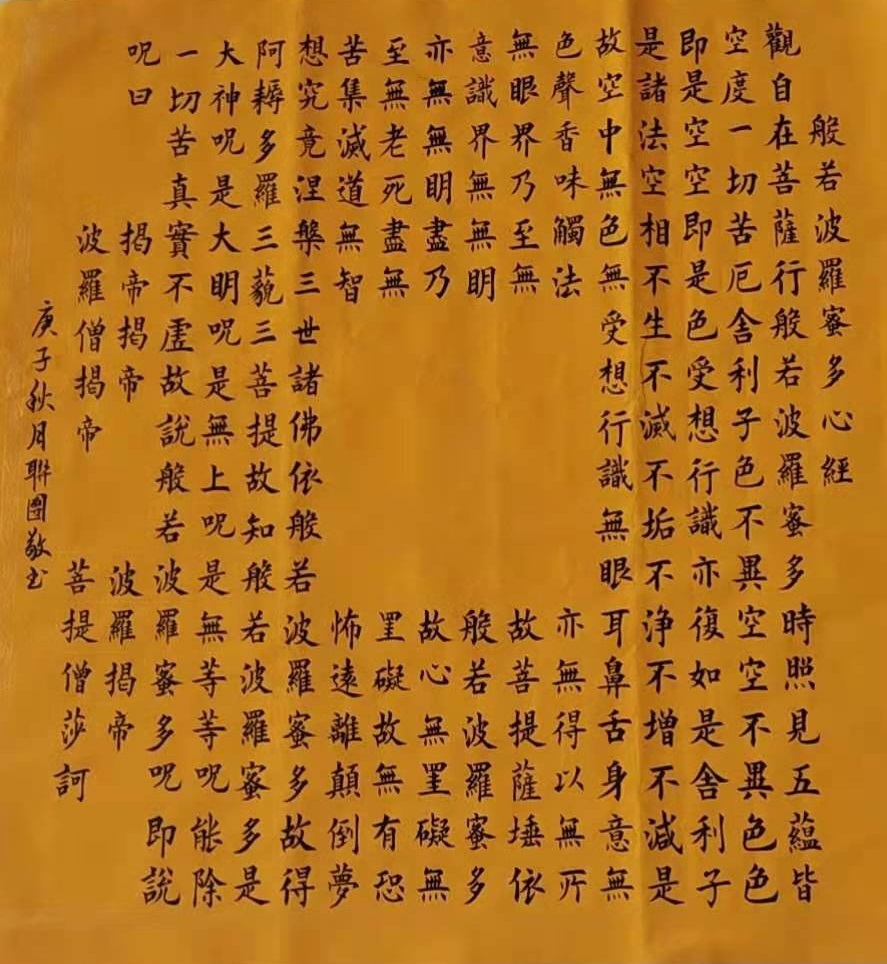 般若波羅蜜多心經
觀自在菩薩行般若波羅蜜多時照見五蘊皆
空度一切苦厄舍利子色不異空空不異色色
即是空空即是色受想行識亦復如是舍利子
是諸法空相不生不滅不垢不淨不增不減是
故空中無色無受想行識無眼耳鼻舌身意無
色聲香味觸法
無眼界乃至無
意識界無無明
亦無無明盡乃
至無老死盡無
苦集滅道無智
亦無得以無所
故菩提薩埵依
般若波羅蜜多
故心無罣礙無
罣礙故無有恐
怖遠離顛倒夢
想究竟涅槃三世諸佛依般若波羅蜜多故得
阿耨多羅三藐三菩提故知般若波羅蜜多是
大神呪是大明呪是無上呪是無等等呪能除
一切苦真實不虛故說般若波羅蜜多呪即說
呪曰
揭帝揭帝 波羅揭帝
波羅僧揭帝 菩提僧莎訶
庚子秋月聯團敬书